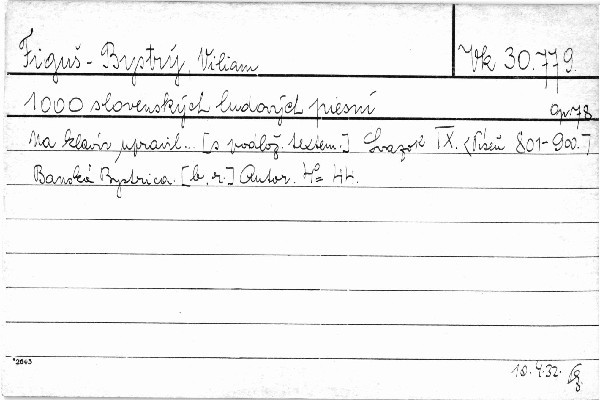 Figuš-Bystrý, Viliam Vk 30.779.
1000 slovenských ludových piesní op. 78
Na klavír upravil... [s podlož. textem.] Svazok IX. <Píseň 801-900.>
Banská Bystrica. [b. r.] Autor. 4° 44.
*2643
18.4.32.